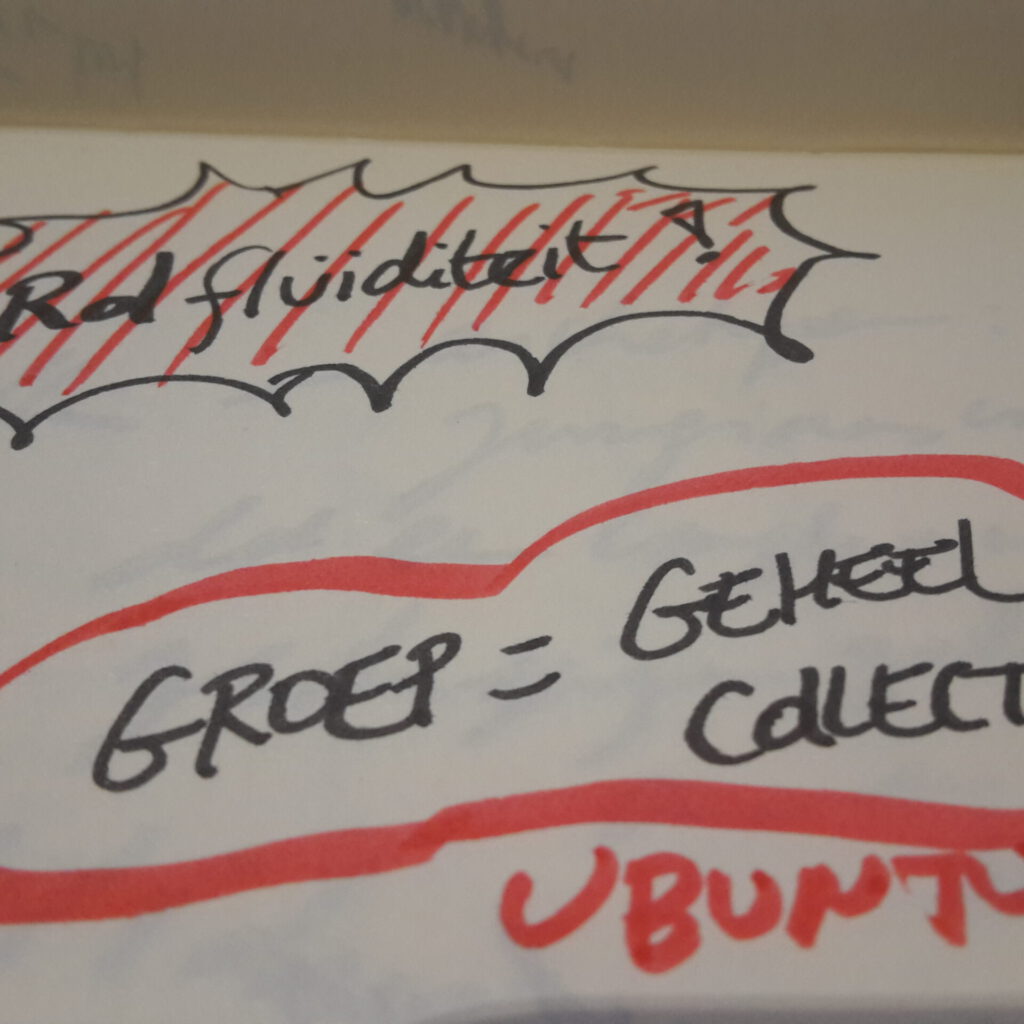 Rol fluïditeit?
GROEP = GEHEEL
COLLECT
UBUNTU